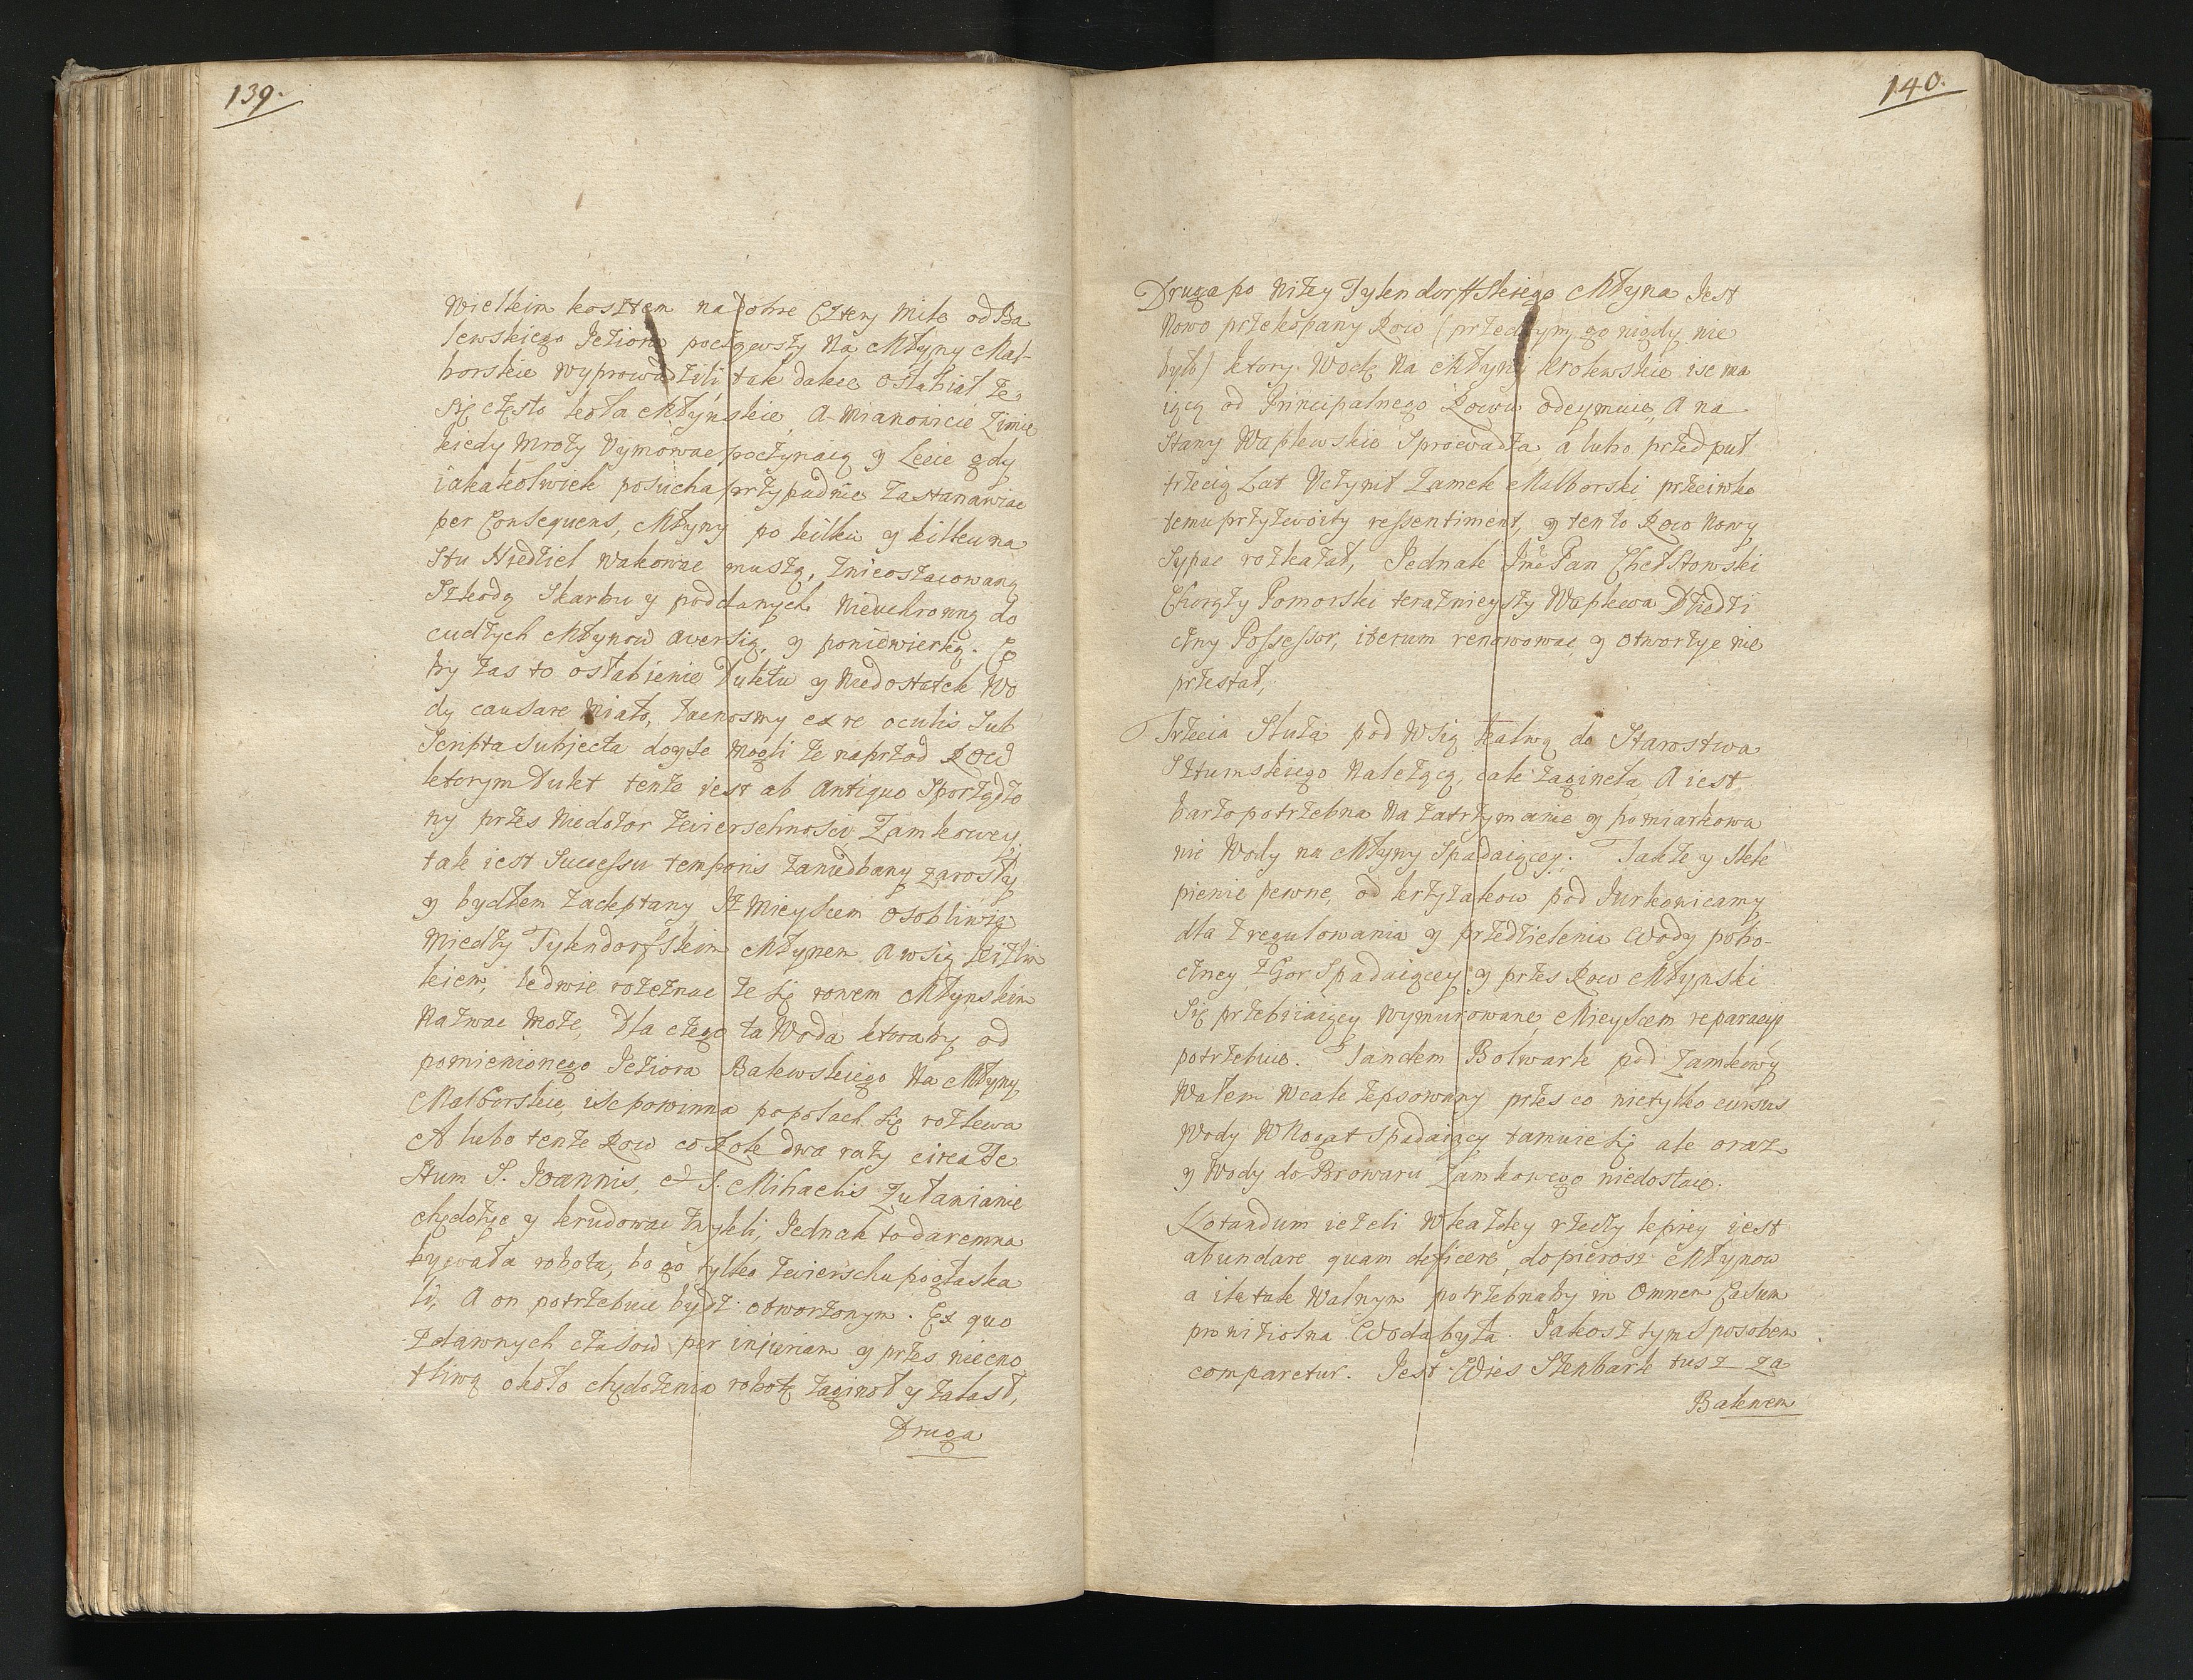 139.
Wielkim kosztem na dobre Cztery mile od Ba
lewskiego Jeziora począwszy Na Młyny Mal-
borskie wyprowadzili, tak dalece osłabiał że
Się często koła Młynskie, A Mianowicie Zimie
kiedy Mrozy Uymowac poczynaią y Lecie gdy
iakakolwiek posucha przypadnie Zastanawiac
per Consequens, Młyny po kilku y kilkuna
Stu Niedziel wakowac muszą, Znieoszacowaną
Szkodą Skarbu y poddanych Nieuchronną do
cudzych Młynow aversią, y poniewierką. Co
by zas to osłabienie Duktu y Niedostatek Wo
dy causare Miało, Łacnosmy ex re oculis Sub
Scripta Subjecta doyść Mogli że naprzod Row
ktorym Dukt tenże iest ab Antiquo Sporządzo
ny przes Niedozor zwierschnosci Zamkowey
tak iest Successu temporis zaniedbany zarosły
y bydłem zadeptany Iż Mieyscem osobliwie
Miedzy Tylendorfskim Młynem A wsią Kizlin
kiem, ledwie rozeznac że się rowem Młynskim
Nazwac Może, Dla czego ta Woda ktoraby od
pomienionego Jeziora Balewskiego Na Młyny
Malborskie, isc powinna po polach się rozlewa
A lubo tenże Row co Rok dwa razy circa Fe
Stum S. Joannis, & S. Mihaelis Zuławianie
chędożyc y krudowac zwykli, Jednak to daremna
bywała robota, bo go tylko zwierschu pogłaska
li, A on potrzebuie bydz otworzonym. Ex quo
zdawnych czasow per injuriam y przes niecno
tliwą około chędożenia robotę zaginoł y zalasł,
Druga
140.
Druga po Niżey Tylendorffskiego Młyna Jest
Nowo przekopany Row (przedtym go nigdy nie
było) ktory Wodę Na Młyny krolewskie isc ma
iącą od Principalnego Rowu odeymuie, A na
Stawy Waplewskie Sprowadza, a lubo przed puł
trzecią Lat Uczynił Zamek Malborski przeciwko
temu przyzwoity ressentiment, y tenło Row Nowy
Sypac rozkazał, Jednak Jmć Pan Chełstowski
Chorąży Pomorski terazniejszy Waplewa Dziedzi
czny Possessor, iterum renowowac y otworzyc nie
przestał,
Trzecia Sluza pod Wsią kalwą do Starostwa
Sztumskiego Należącą, cale zagineła, A iest
barzo potrzebna Na zatrzymanie y pomiarkowa
nie Wody na Młyny Spadaiącey. Także y Skle
pienie pewne, od krzyzakow pod Jurkowicamy
dla zregulowania y przedzielenia Wody pobo-
czney z Gor Spadaiącey y przes Row Młynski
Się przebiiaiącey wymurowane, Mieyscem reparacyi
potrzebuie. Tandem Bolwark pod Zamkowy
Wałem Wcale zepsowany przes co nietylko cursus
Wody W Nogat Spadaiący tamuie się ale oraz
y Wody do Browaru Zamkowego niedostaie.
Notandum ieżeli W każdey rzeczy lepiey iest
abundare quam deficere, dopierosz Młynow
a ile tak Walnym potrzebnaby in Omnem Casum
prowizioina Woda była. Jakosz tym Sposobem
comparetur. Jest Wies Stenbark tusz za
Balewem